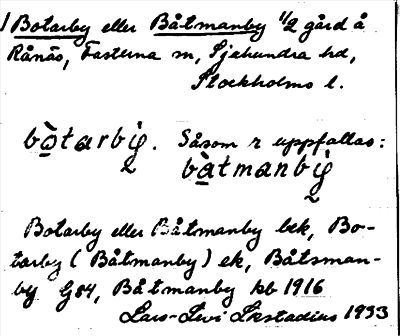 Botarby eller Båtmanby 1/2 gård å
Rånäs, Fasterna sn, Sjuhundra hd,
Stockholms l.
bòtarby. Såsom r uppfattas:
bàtmanby
Botarby eller Båtmanby bek, Bo-
tarby (Båtmanby) ek, Båtsman-
by G84, Båtmanby kb 1916
Lars-Levi Læstadius 1933